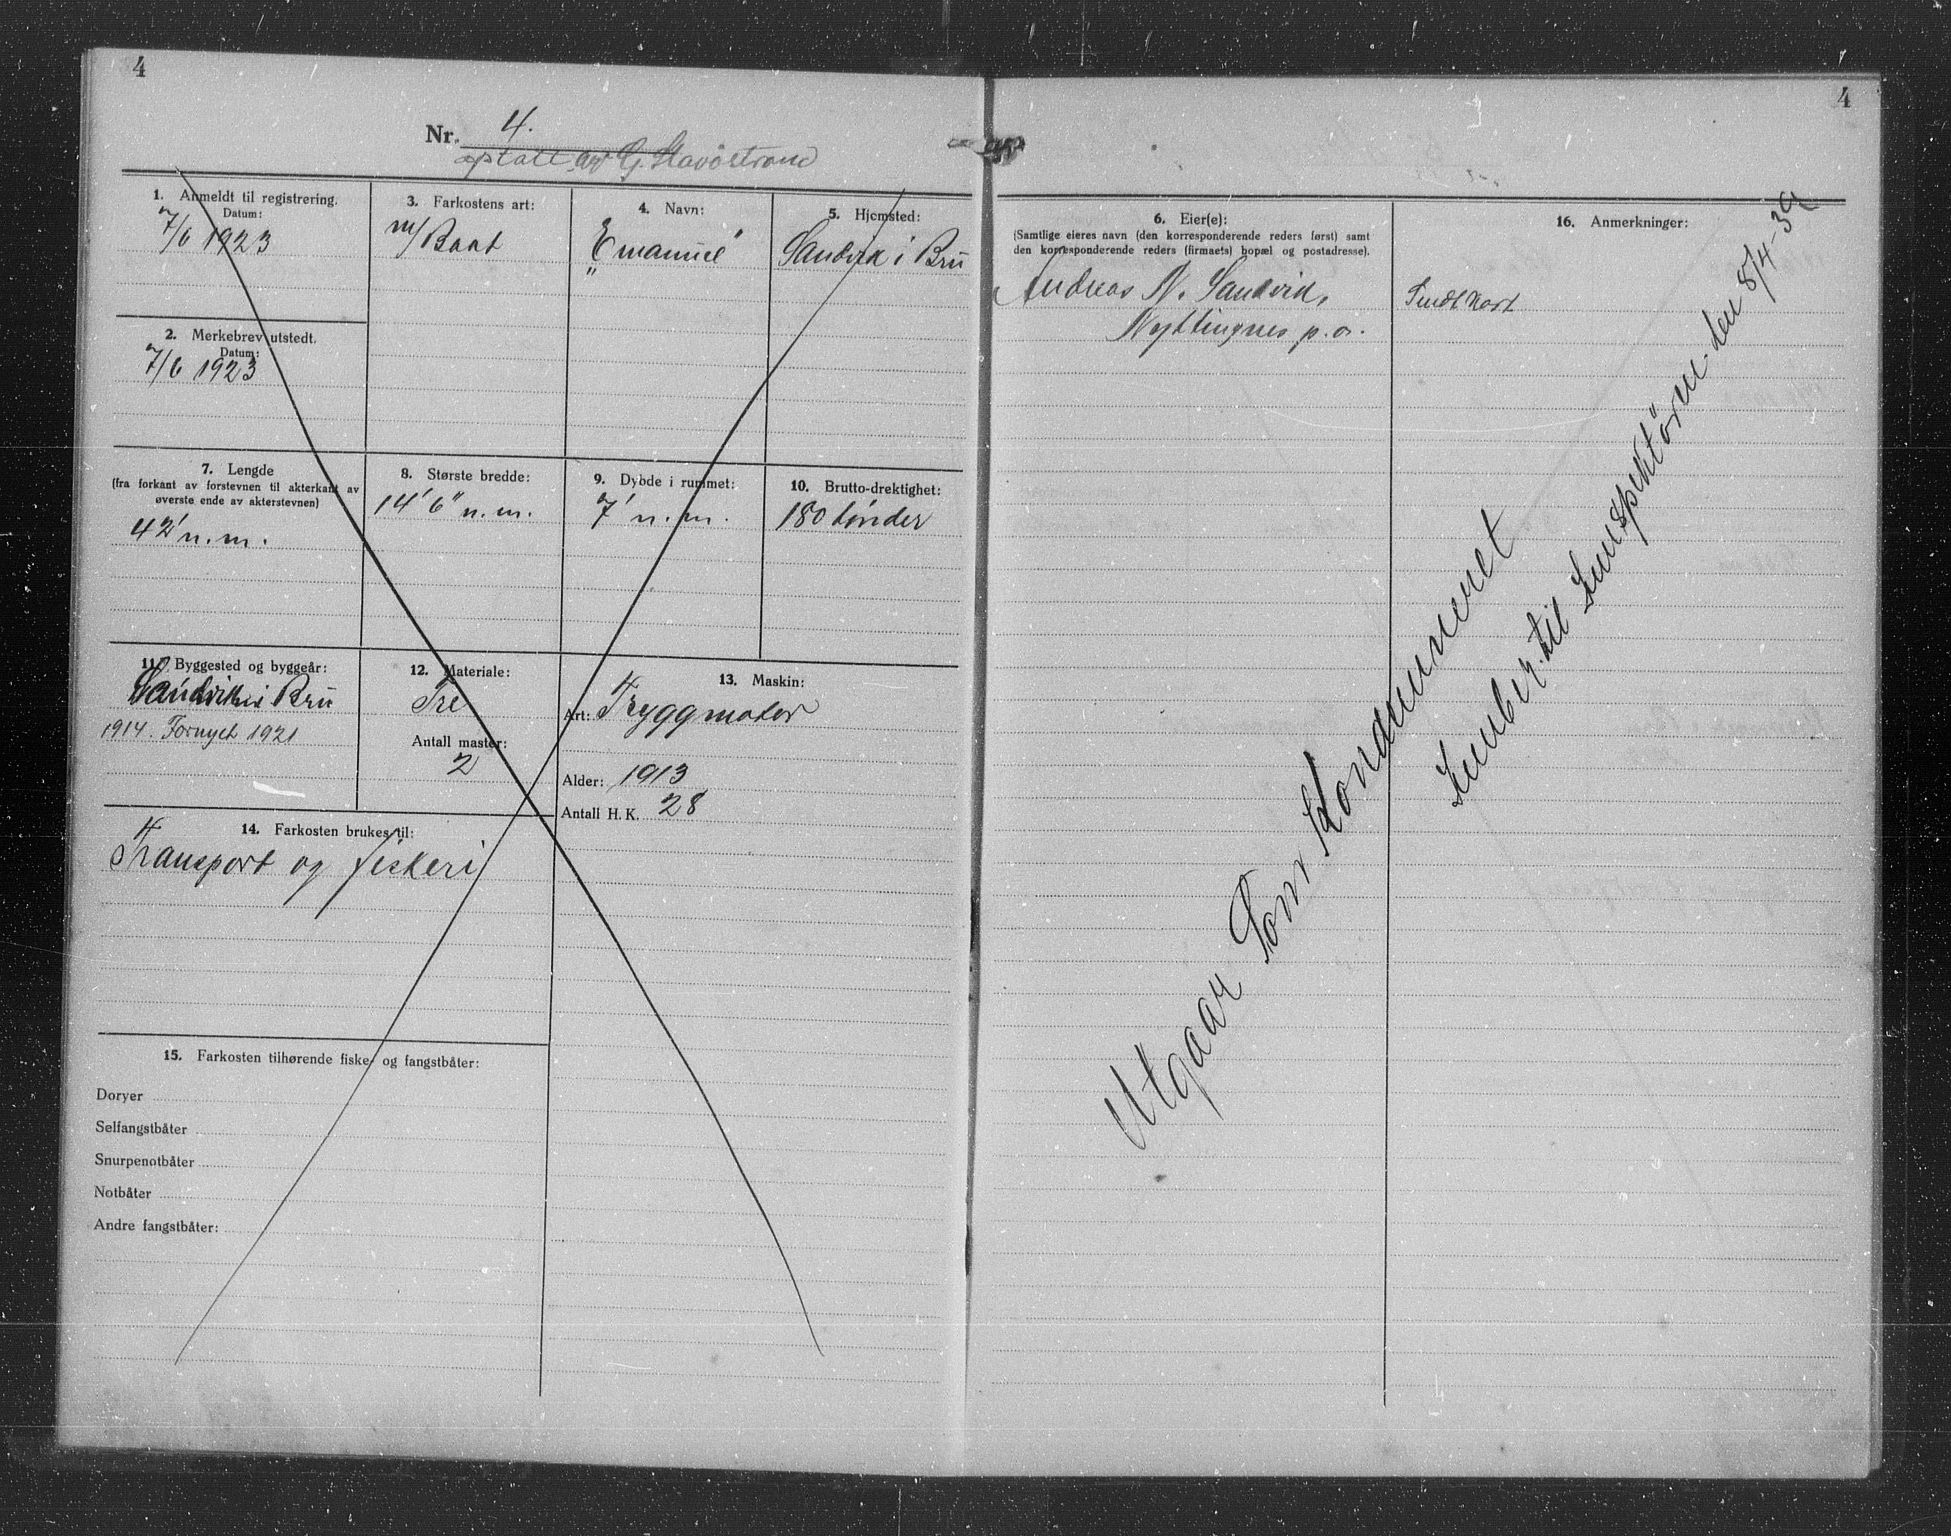 4
Nr. 4.
optatt av G. Stavöstrand
1. Anmeldt til registrering.
Datum:
7/6 1923
2. Merkebrev utstedt.
Datum:
7/6 1923
3. Farkostens art:
m/Baat
4. Navn:
"Emanuel"
5. Hjemsted:
Sandvik i Bru
7. Lengde
(fra forkant av forstevnen til akterkant av
øverste ende av akterstevnen)
42' n.m.
8. Største bredde:
14' 6" n.m.
9. Dybde i rummet:
7' n.m.
10. Brutto-drektighet:
180 tönder
11. Byggested og byggeår:
Sandviken i Bru
1914. Fornyet 1921
12. Materiale:
Tre
Antall master:
2
13. Maskin:
Art: Tryggmotor
Alder: 1913
Antall H. K. 28
14. Farkosten brukes til:
Transport og fiskeri
15. Farkosten tilhørende fiske- og fangstbåter:
Doryer
Selfangstbåter
Snurpenotbåter
Notbåter
Andre fangstbåter:
4
6. Eier(e):
(Samtlige eieres navn (den korresponderende reders først) samt
den korresponderende reders (firmaets) bopæl og postadresse).
Andreas N. Sandvik,
Nyttingnes p.o.
16. Anmerkninger:
Sendt kort
Utgaar Som Kondemneret
Innber. til Innspektören den 8/4-39